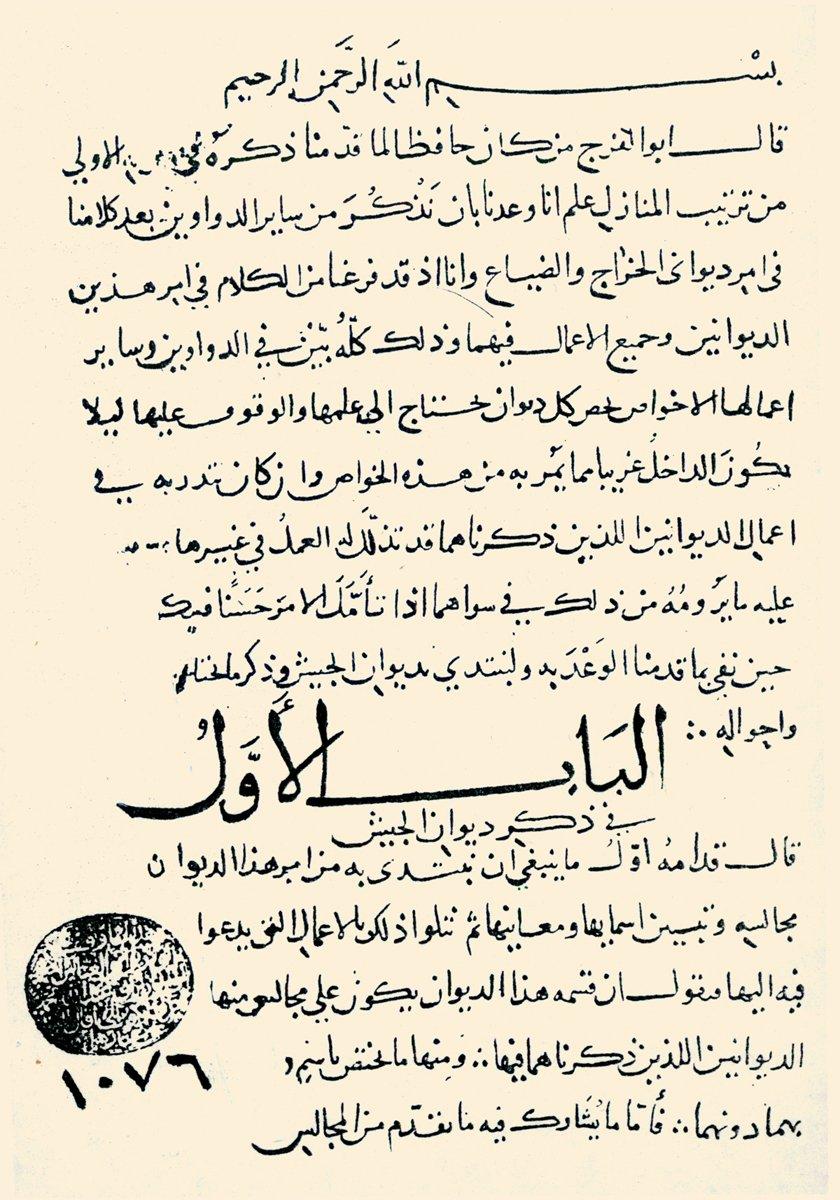 بسم اللهِ الرَّحمن الرحيم
قال ابو الفرج من كان حافظا لما قدمنا ذكره في الاولي
من ترتيب المنازل علم انا وعدنا بان نَذْكُرَ من ساير الدواوين بعد كلامنا
في امر ديواني الخراج والضياع وانا اذ قد فرغنا من الكلام في امر هذين
الديوانين وجميع الاعمال فيهما وذلك كلُّهُ بيّن في الدواوين وساير
اعمالها الا خواص تخص كل ديوان يحتاج الي علمها والوقوف عليها ليلا
يكونَ الداخلُ غريبا مما يمر به من هذه الخواص وان كان تدربه في
اعمال الديوانين اللذين ذكرناهما قد تذلّل له العملُ في غيرها
عليه ما يرومُهُ من ذلك في سواهما اذا تأَمَّلَ الامرَ حَسَنًا
حين نفي بما قدمنا الوَعْدَ به ولنبتدي بديوان الجيش وذكر
واحواله ∴
البَاب الأَوَّلُ
في ذكر ديوان الجيش
قال قدامهُ اوّلُ ما ينبغي ان نبتدى به من امر هذا الديوان
مجالسه وتبيين اسمايها ومعانيها ثم نتلوا ذلك بالاعمال التي يدعوا
فيه اليها فنقول ان قسمه هذا الديوان يكون علي مجالس منها
الديوانين اللذين ذكرناهما فيها ∴ ومِنها ما يختص باسمِ
بهما دونهما ∴ فأَمّا ما يُشارك فيه ما تقدّم من المجالس
١٠٧٦